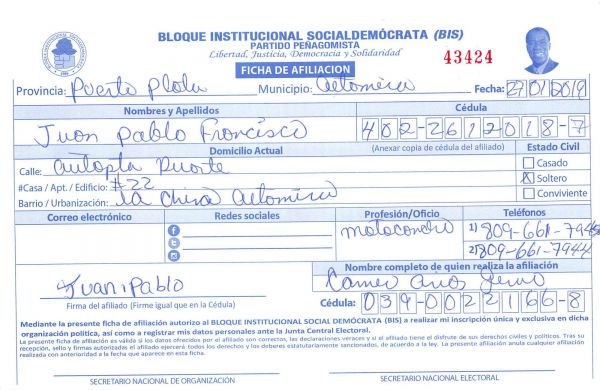 BLOQUE INSTITUCIONAL SOCIALDEMÓCRATA (BIS)
PARTIDO PEÑAGOMISTA
Libertad, Justicia, Democracia y Solidaridad
43424
FICHA DE AFILIACION
Provincia: Puerto Plata Municipio: Altamira Fecha: 27/01/2019
Nombres y Apellidos Cédula
Juan Pablo Francisco 402-2612018-7
Domicilio Actual (Anexar copia de cédula del afiliado) Estado Civil
Calle: autopta Duarte Casado
#Casa / Apt. / Edificio: #22 X Soltero
Barrio / Urbanización: la China Altamira Conviviente
Correo electrónico Redes sociales Profesión/Oficio Teléfonos
motoconcho 1) 809-661-7944
2) 809-661-7944
Nombre completo de quien realiza la afiliación
Juan Pablo
Firma del afiliado (Firme igual que en la Cédula) Cédula: 039-0022166-8
Mediante la presente ficha de afiliación autorizo al BLOQUE INSTITUCIONAL SOCIAL DEMÓCRATA (BIS) a realizar mi inscripción única y exclusiva en dicha
organización política, así como a registrar mis datos personales ante la Junta Central Electoral.
La presente ficha de afiliación es válida si los datos ofrecidos por el afiliado son correctos, las declaraciones veraces y si el afiliado tiene el disfrute de sus derechos civiles y políticos. Tras su
recepción, sello y firmas autorizadas el afiliado ejercerá todos los derechos y los deberes estatutariamente sancionados, de acuerdo a la ley. La presente afiliación anula cualquier afiliación
realizada con anterioridad a la fecha que aparece en esta ficha.
SECRETARIO NACIONAL DE ORGANIZACIÓN SECRETARIO NACIONAL ELECTORAL